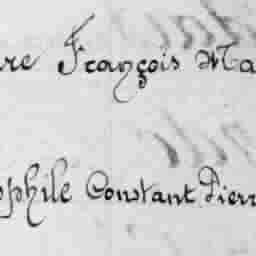 re François Ma
ophile Constant Pierr